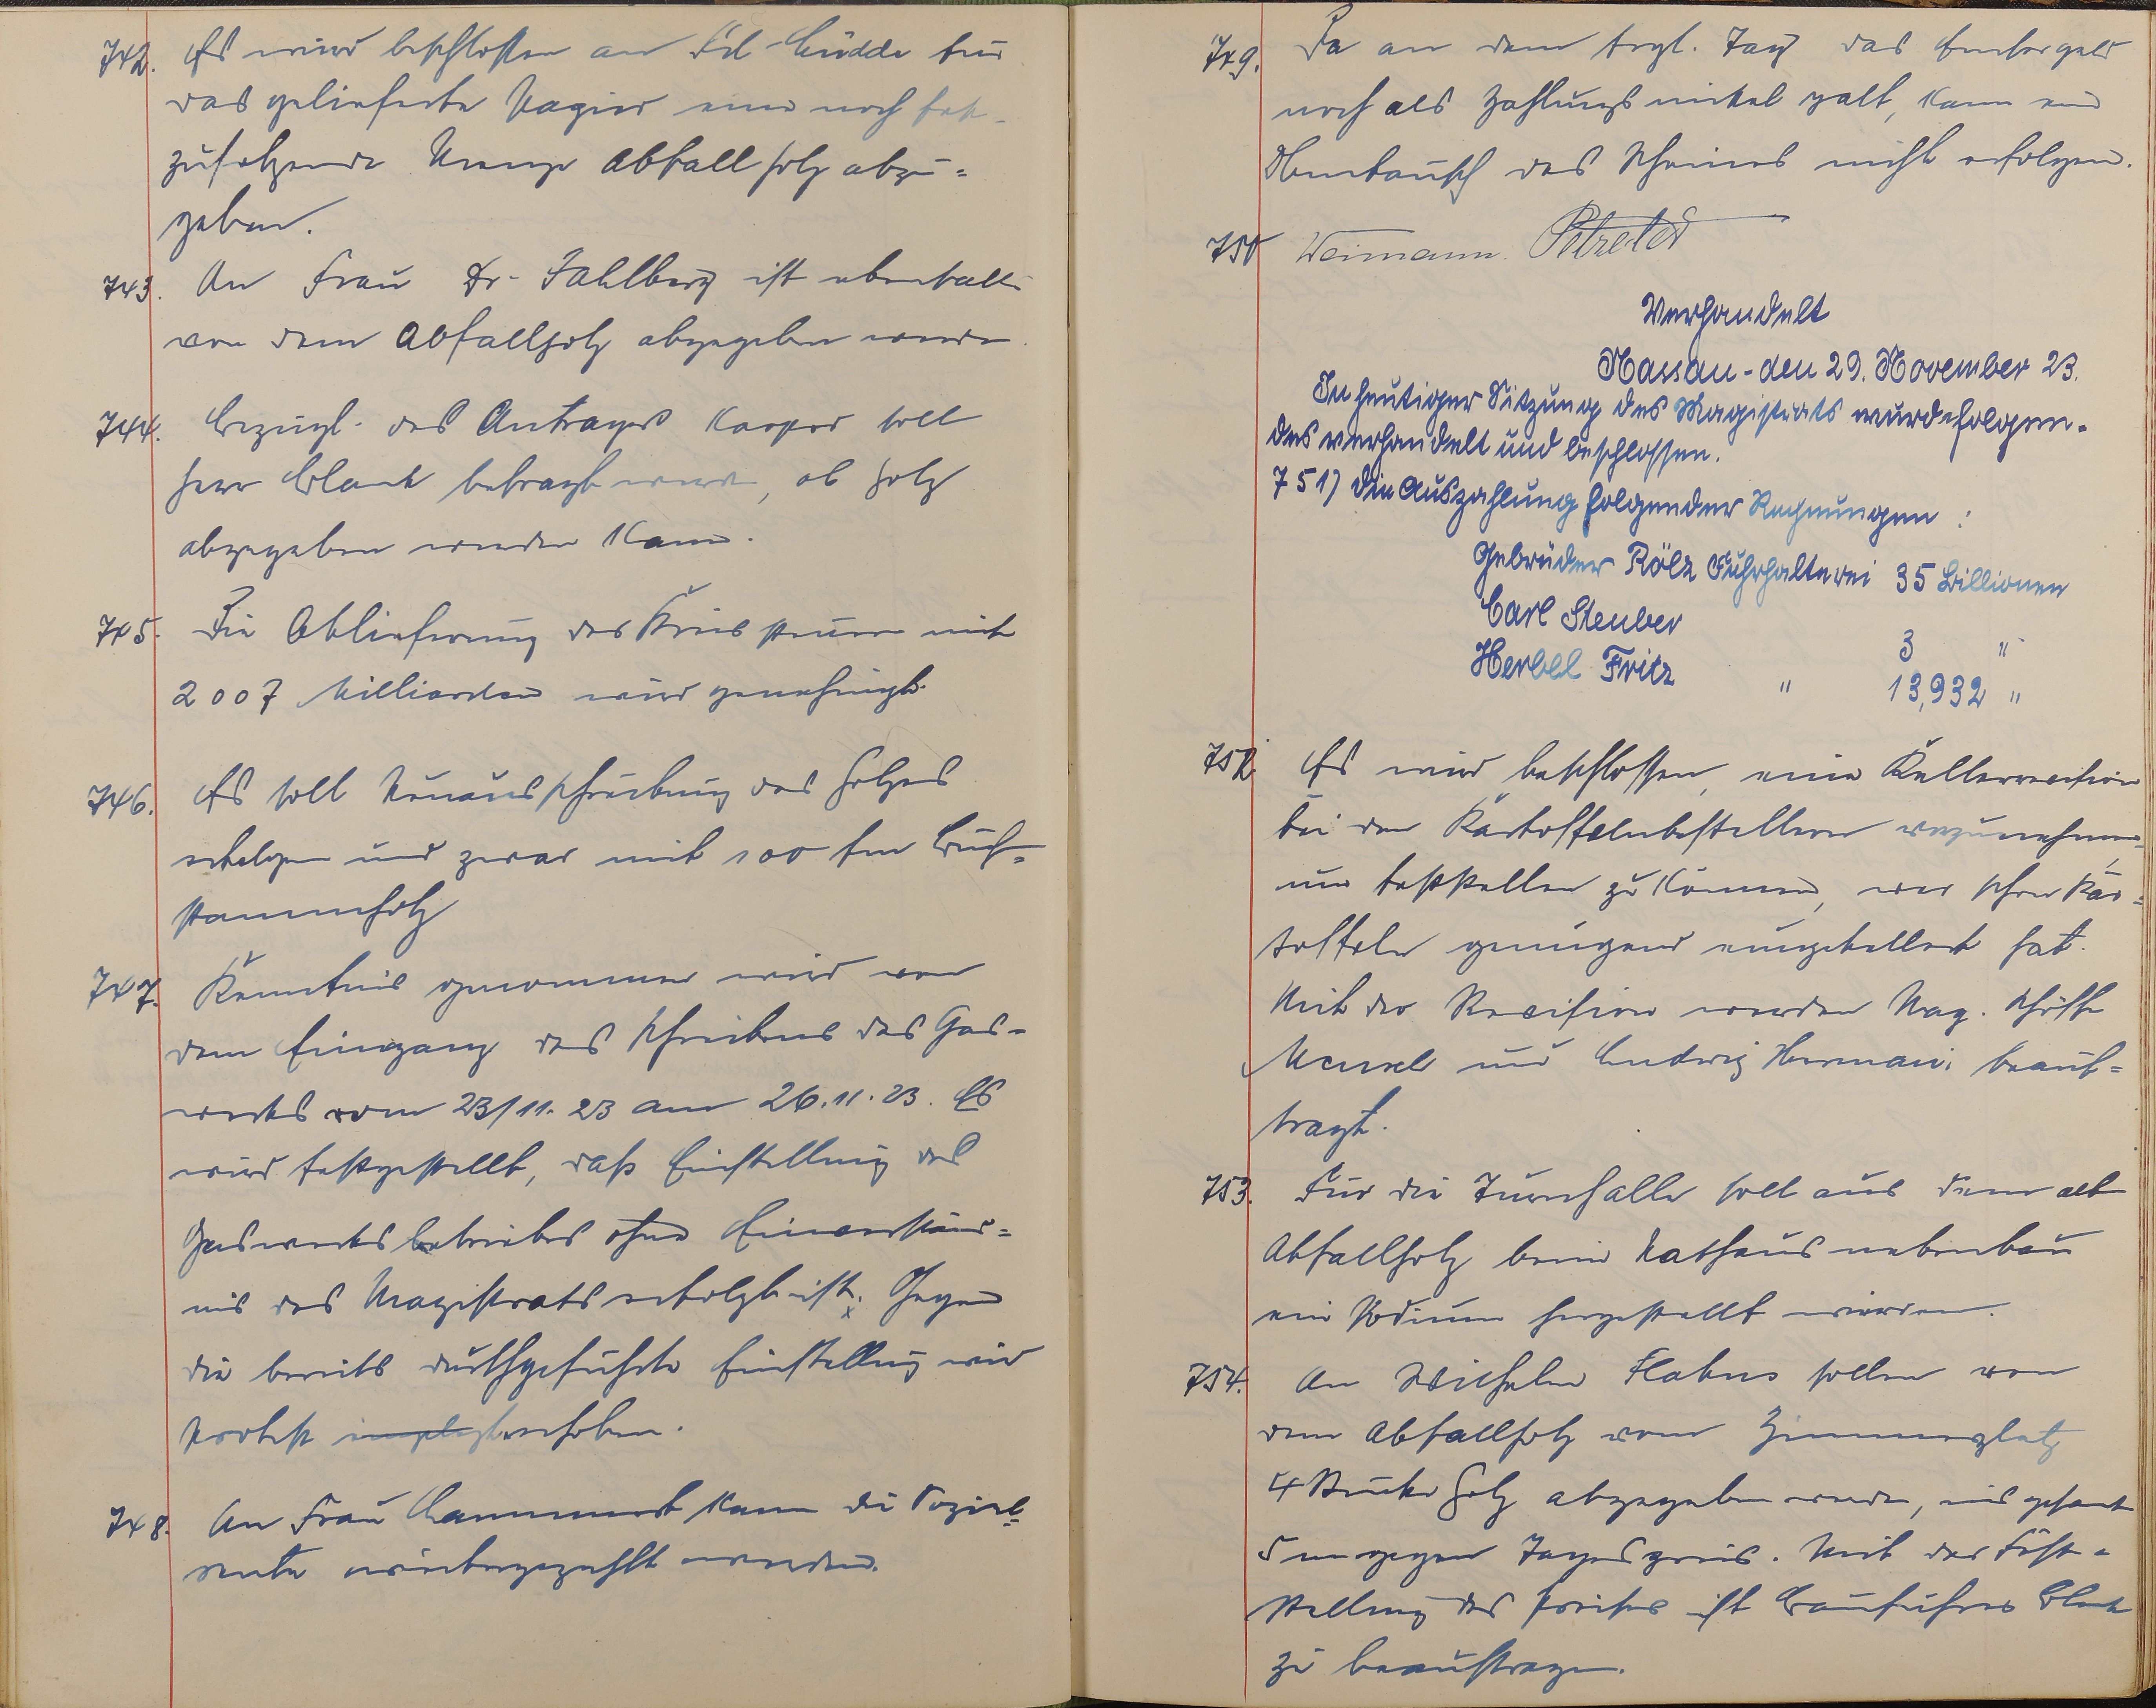 742. Es wird beschlossen an Frl. Lüdde für
das gelieferte Papier eine noch fest-
zusetzende Menge Abfallholz abzu=
geben.
743. An Frau Dr. Fahlberg ist ebenfalls
von dem Abfallholz abgegeben werden.
744. Bezügl. des Antrages Kaspar soll
Herr Blank befragt werden, ob Holz
abgegeben werden kann.
745. Die Ablieferung der Kreissteuern mit
2007 Milliarden wird genehmigt.
746. Es soll Neuausschreibung des Holzes
erfolgen und zwar mit 100 fm Buch=
stammholz
747. Kenntnis genommen wird von
dem Eingang des Schreibens des Gas-
werks vom 23/11. 23 am 26.11.23. Es
wird festgestellt, daß Einstellung des
Gaswerksbetriebes ohne Einverständ=
nis des Magistrats erfolgt ist. Gegen
die bereits durchgeführte Einstellung wird
Protest erhoben.
748. An Frau kann die Sozial=
rente weitergezahlt werden.
749. Da an dem fragl. Tag das
noch als Zahlungsmittel galt, kann ein
Umtausch des Scheines nicht erfolgen.
750 Weimann.
Verhandelt
Nassau-den 29. November 23.
In heutiger Sitzung des Magistrats wurde folgen-
des verhandelt und beschlossen.
751) Die Auszahlung folgender Rechnungen :
Gebrüder Rölz Fuhrhalterei 35 Billionen
Carl Steuber 3 "
Herbel Fritz " 13,932 "
752. Es wird beschlossen, eine Kellerrevision
bei den Kartoffelnbestellern vorzunehmen
um feststellen zu können, wer schon Kar=
toffeln genügend eingekellert hat.
Mit der Revision werden Mag. Schöffe
Meusel und Ludwig Hermani beauf=
tragt.
753. Für die Turnhalle soll aus dem alt
Abfallholz beim Rathausnebenbau
ein Podium hergestellt werden.
754. An Wilhelm sollen von
dem Abfallholz vom Zimmerplatz
4 Stücke Holz abgegeben werden, insgesamt
5 m gegen Tagespreis. Mit der Fest=
stellung des Preises ist Bauführer Blank
zu beauftragen.